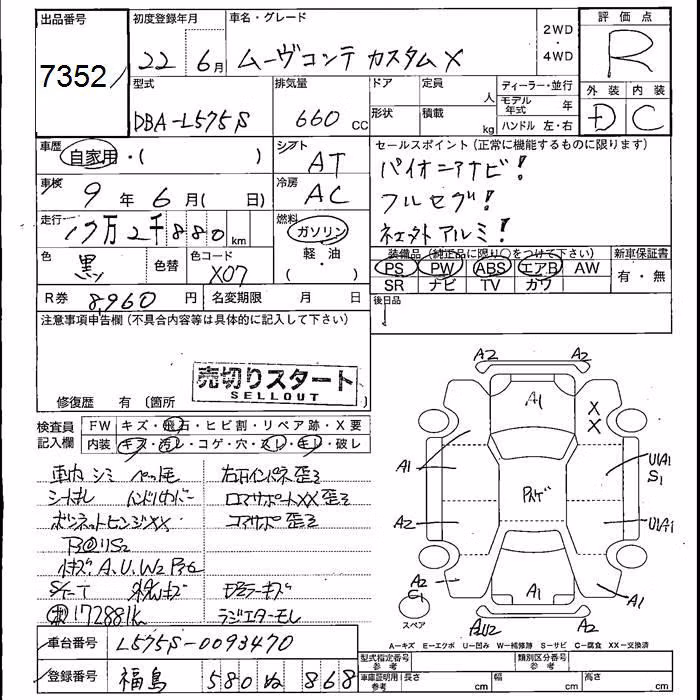 出品番号
7352
初度登録年月
22 6月
車名・グレード
ムーヴコンテ カスタムX
2WD
・
4WD
評価点
R
外装 内装
D C
型式
DBA-L575S
排気量
660 cc
ドア
定員
人
形状
積載
kg
ディーラー・並行
モデル年式 年
ハンドル 左・右
車歴
自家用・( )
シフト
AT
車検
9年 6月( 日)
冷房
AC
走行
17万2千880 km
燃料
ガソリン
軽・油
・( )
色
黒
色替
色コード
X07
R券 8,960 円
名変期限 月 日
セールスポイント(正常に機能するものに限ります)
パイオニアナビ!
フルセグ!
社外アルミ!
装備品(純正品に限り○をつけて下さい)
PS PW ABS エアB AW
SR ナビ TV カワ
新車保証書
有・無
後日品
注意事項申告欄(不具合内容等は具体的に記入して下さい)
売切りスタート
SELLOUT
修復歴 有(箇所 )
検査員記入欄
FW キズ・飛石・ヒビ割・リペア跡・X要
内装 キズ・汚レ・コゲ・穴・スレ・キレ・破レ
車内シミ ペット毛
ハンドルカバー
ボンネットヒンジXX
A.U.W2
S/T
172881k
左右インパネ歪ミ
コアサポートXX歪ミ
コアサポ歪ミ
ラジエターモレ
A2 A2
A1
X
X
A1
U1A1
S1
A2
U1A1
A2
C1
A1
A1
A2U2
スペア
A-キズ E-エクボ U-凹み W-補修跡 S-サビ C-腐食 XX-交換済
車台番号 L575S-0093470
登録番号 福島 580 ぬ 868
型式指定番号 参考
類別区分番号 参考
車庫証明用 参考
長さ cm
幅 cm
高さ cm